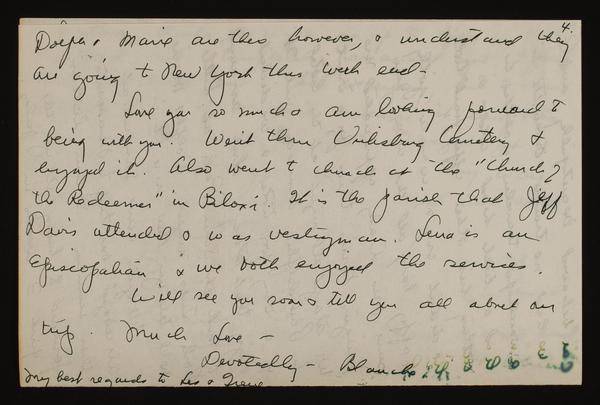 4.
Dolph & Marie are this however, & understand they
are going to New York this week end -
Love you so much & am looking forward to
being with you. Went thru Vicksburg Cemetery &
enjoyed it. Also went to church at the "Church of
the Redeemer" in Biloxi. It is the parish that Jeff
Davis attended & was vestryman. Lena is an
Episcopalian & we both enjoyed the services.
Will see you soon & tell you all about our
trip. Much Love -
Devotedly - Blanche
My best regards to Les & Irene